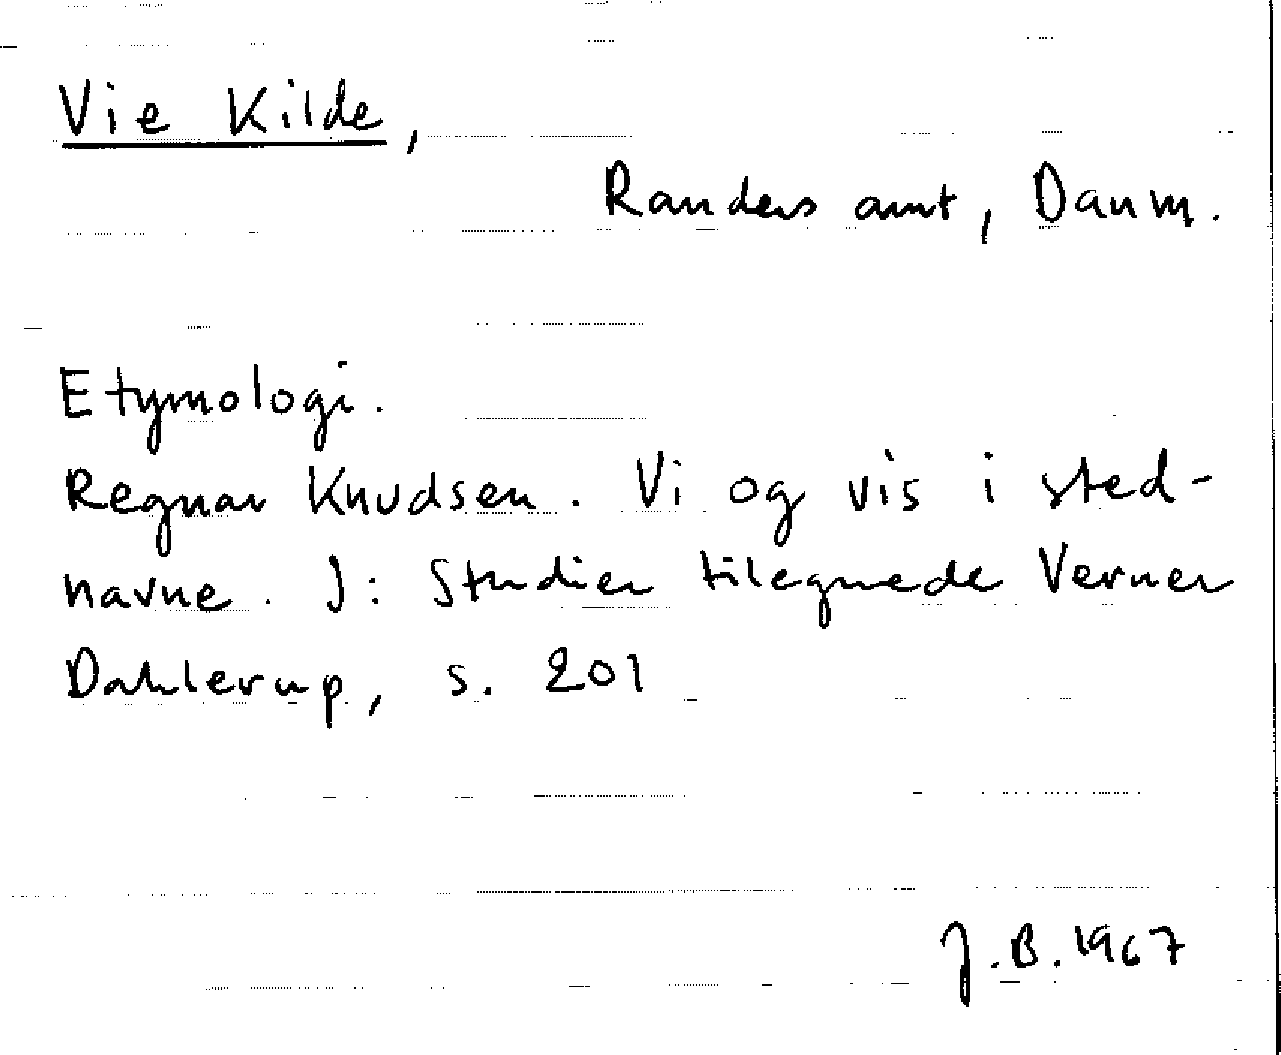 Vie Kilde,
Randers amt, Danm.
Etymologi.
Regnar Knudsen. Vi og vis i sted-
navne. I: Studier tilegnede Verner
Dahlerup, s. 201
J.B. 1967